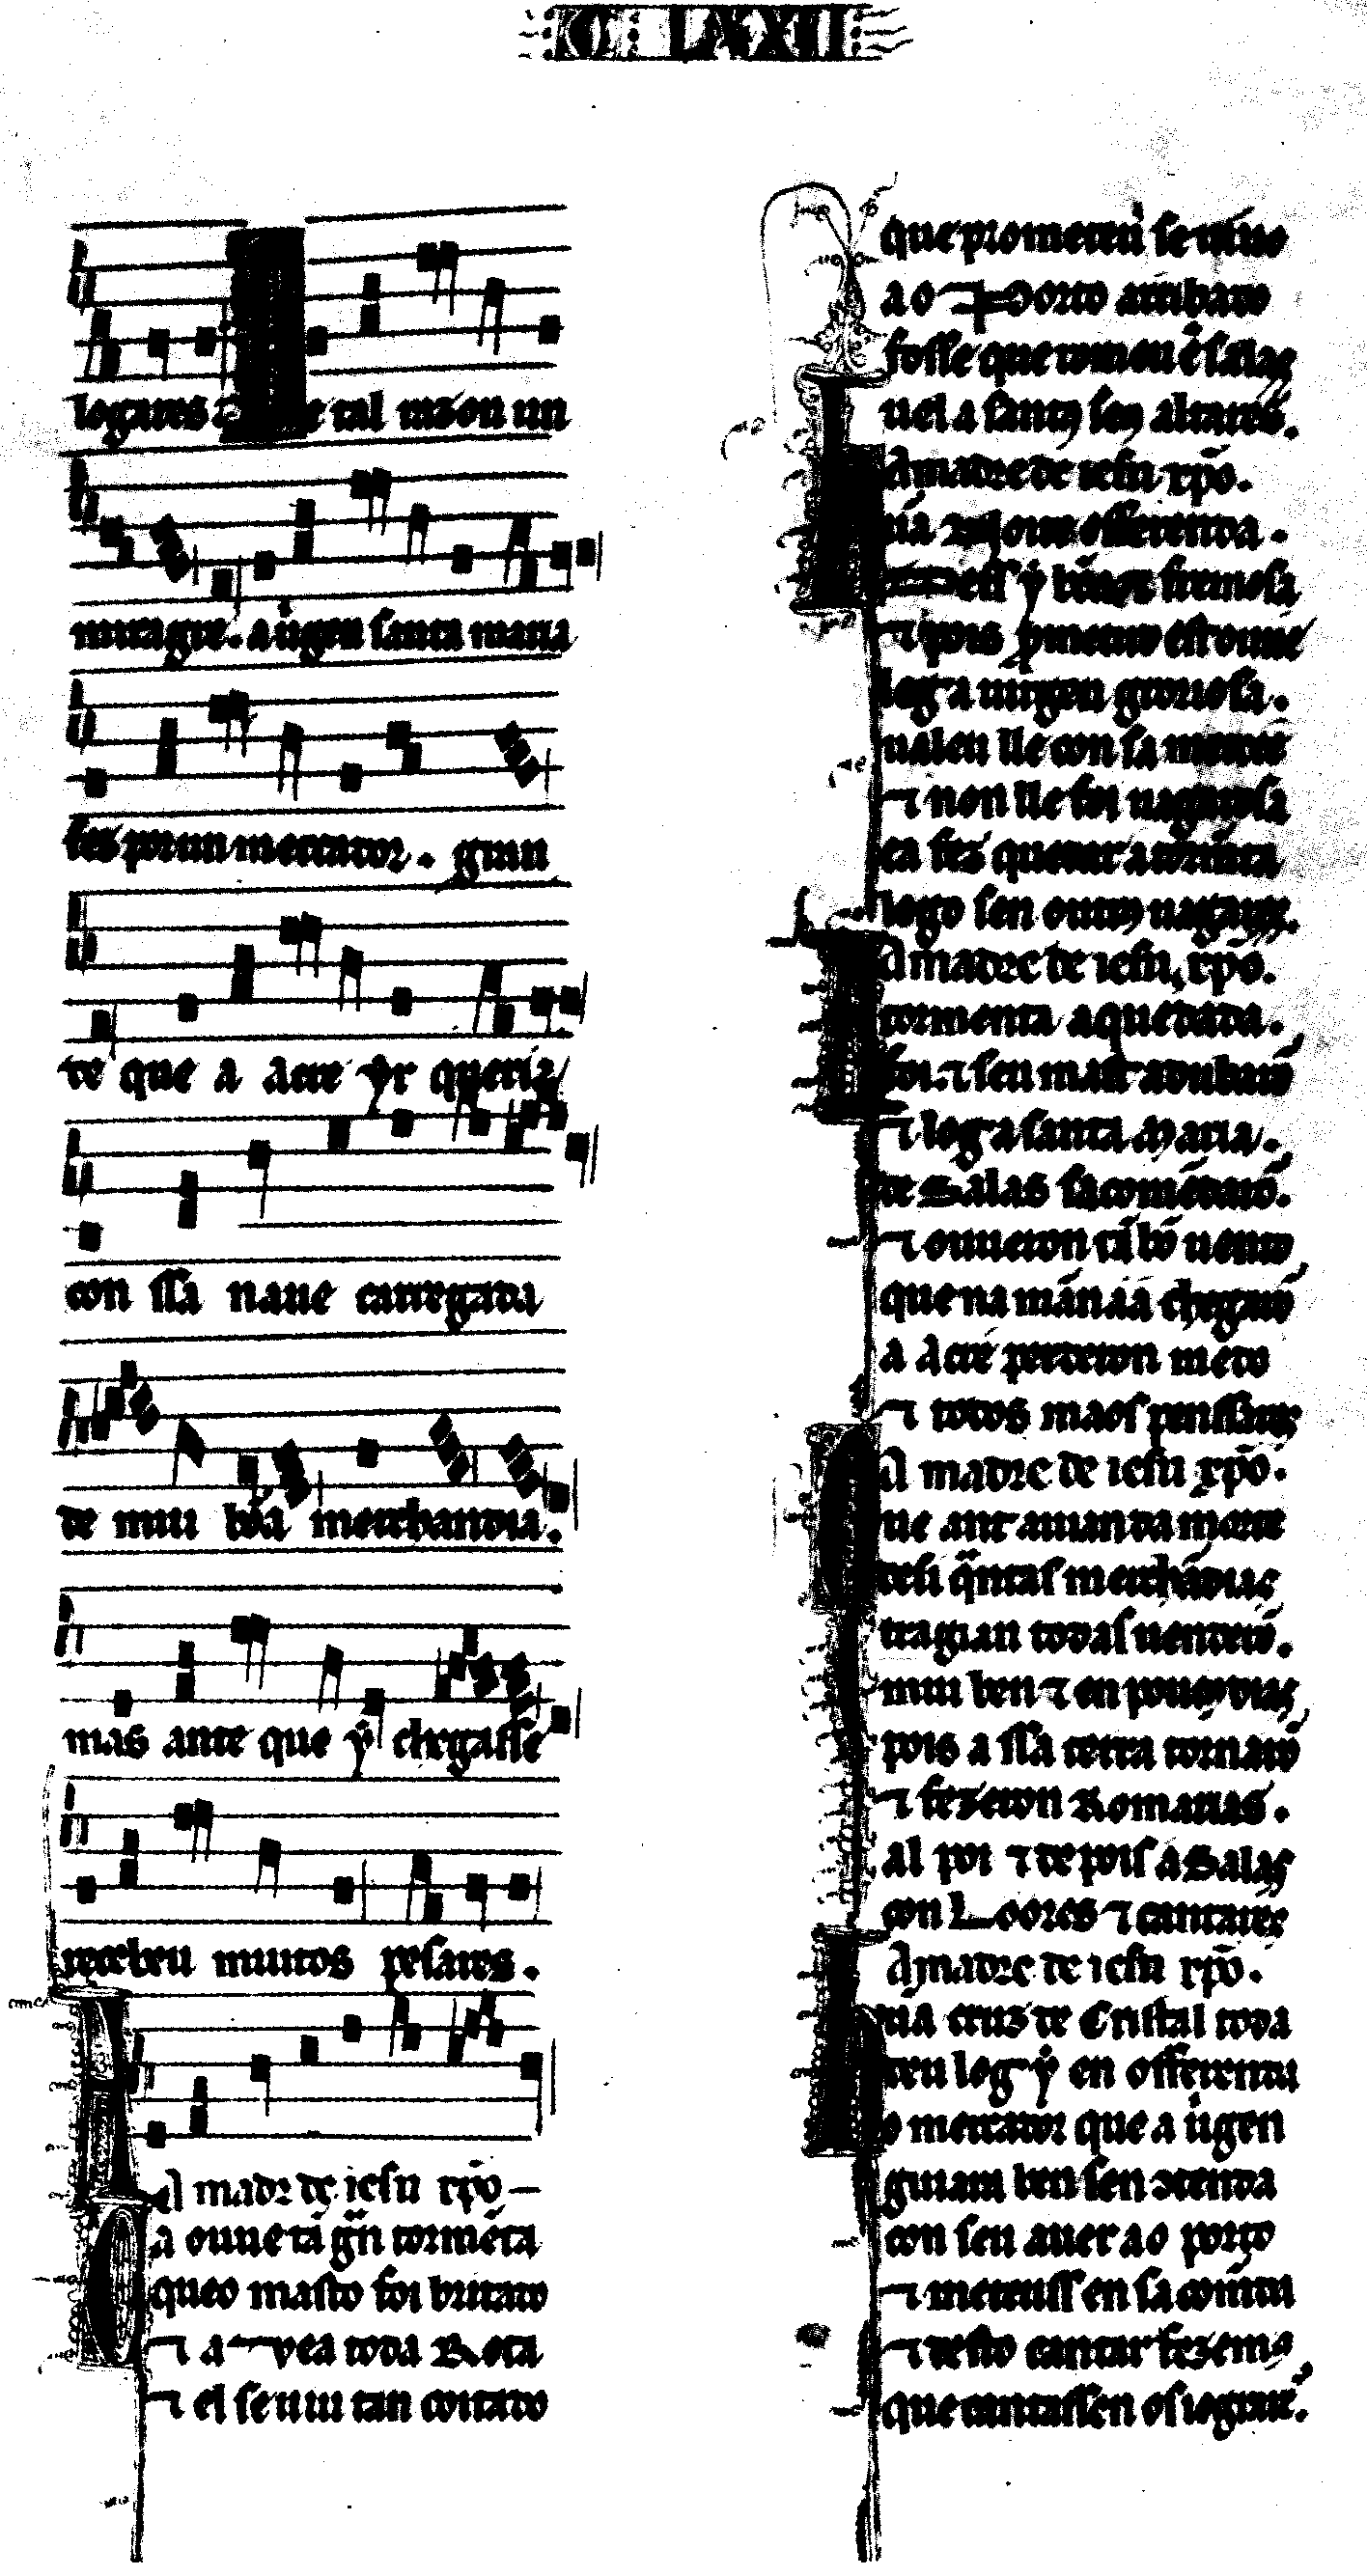 C LXXII
logares e tal razon un
miragre. a uirgen santa maria
fez por un mercador. guiu
de que a acre yr queria
con ssa naue carregada
de mui bõa merchandia.
mas ante que y chegasse
recebeu muitos pesares.
A madre de iesu xpo
a ouue tã gñ tormẽta
queo masto foi britado
⁊ a uea toda Rota
⁊ el se uiu tan coitado
que prometeu se uiuo
ao Porto arribado
fosse que romeu ẽ salas
uel a santos seus altares.
A madre de iesu xpo.
offerenda.
fremosa
⁊ pois prometudo est ouue
log a uirgen groriosa.
ualeu lle con sa mercee
⁊ non lle foi uagarosa
ca fez quedar a tormenta
logo sen outros uagares.
A madre de iesu xpo.
tormenta a quedada.
foi. ⁊ seu mast adubarõ
⁊ log a santa Maria.
de Salas sacomẽdarõ.
⁊ ouueron tã bõ uento
que na mannáa chegarõ
a Acre
⁊ todos
A madre de iesu xpo.
ue
tragian todas uenderõ.
mui ben ⁊ en poucos dias
pois a ssa terra tornarõ
⁊ fezeron Romarias.
al poi ⁊ de pois a Salas
con Loores ⁊ cantares
A madre de iesu xpo.
ũa cruz de Cristal toda
deu log y en offerenda
o mercador que a uirgen
guiara ben sen ↄtenda
con seu auer ao porto
⁊ meteuss en sa comẽda
⁊ desto cantar fezemos
que cantassen os iograres.